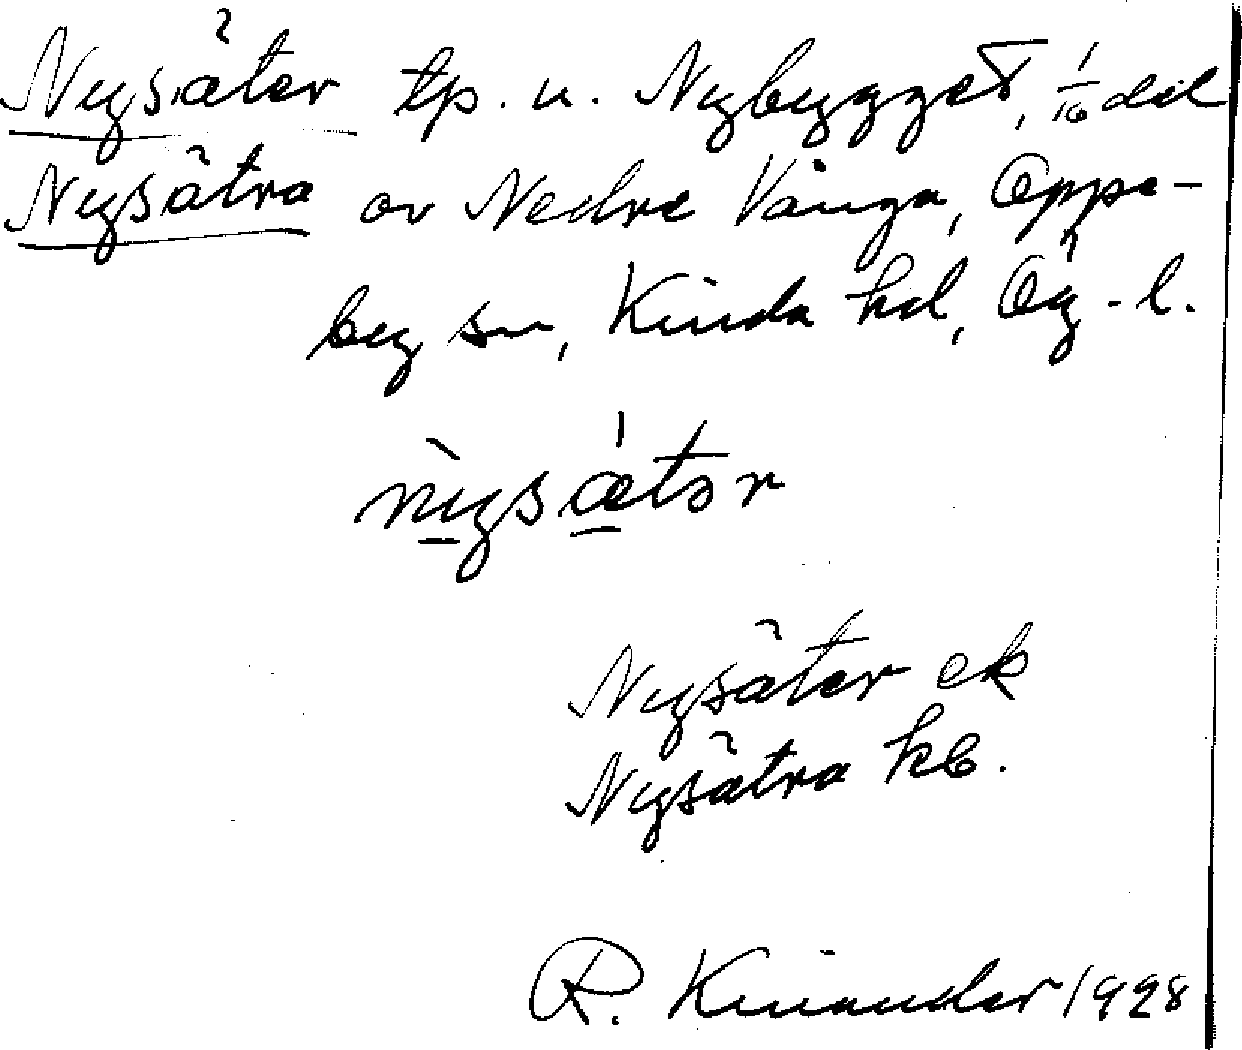 Nysäter tp. u. Nybygget, 1/16 del
Nysätra av Nedre Vånga, Oppe-
by sn, Kinda hd, Ög-l.
Nysäter ek
Nysätra kb.
R. Kinander 1928